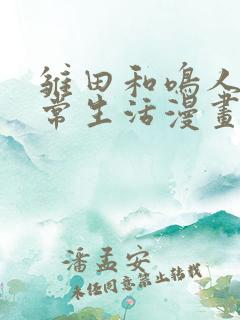 雏田和鳴人
常生活漫畫
潘孟安
未任同意禁止转载